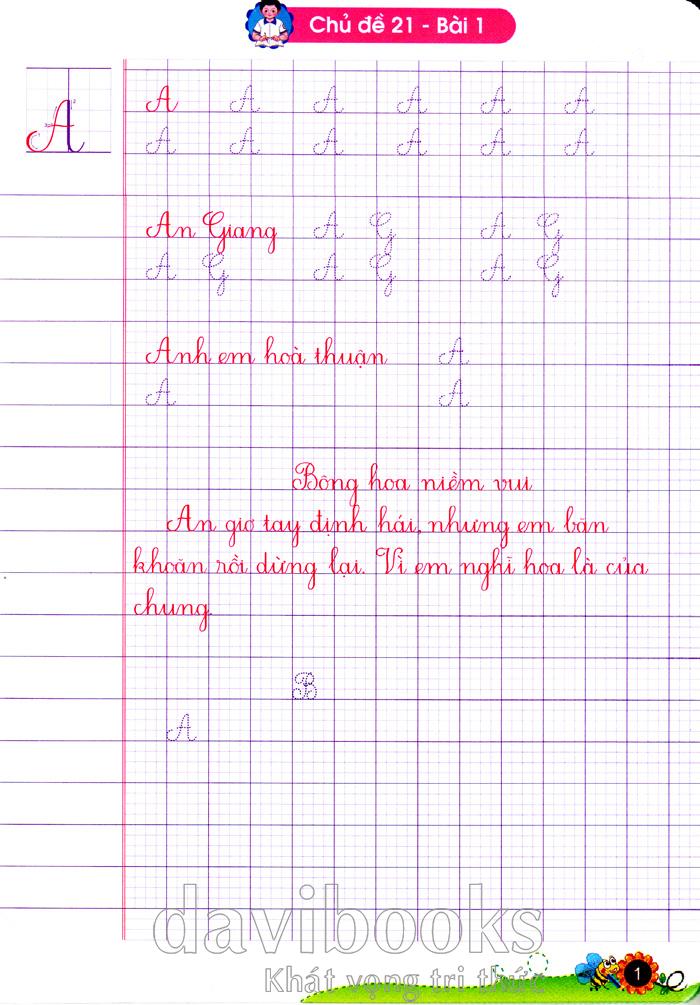 Chủ đề 21 - Bài 1
A
A A A A A A
A A A A A A
An Giang A G A G
A G A G A G
Anh em hoà thuận A
A A
Bông hoa niềm vui
An giơ tay định hái, nhưng em băn
khoăn rồi dừng lại. Vì em nghĩ hoa là của
chung.
B
A
davibooks
Khát vọng tri thức
1